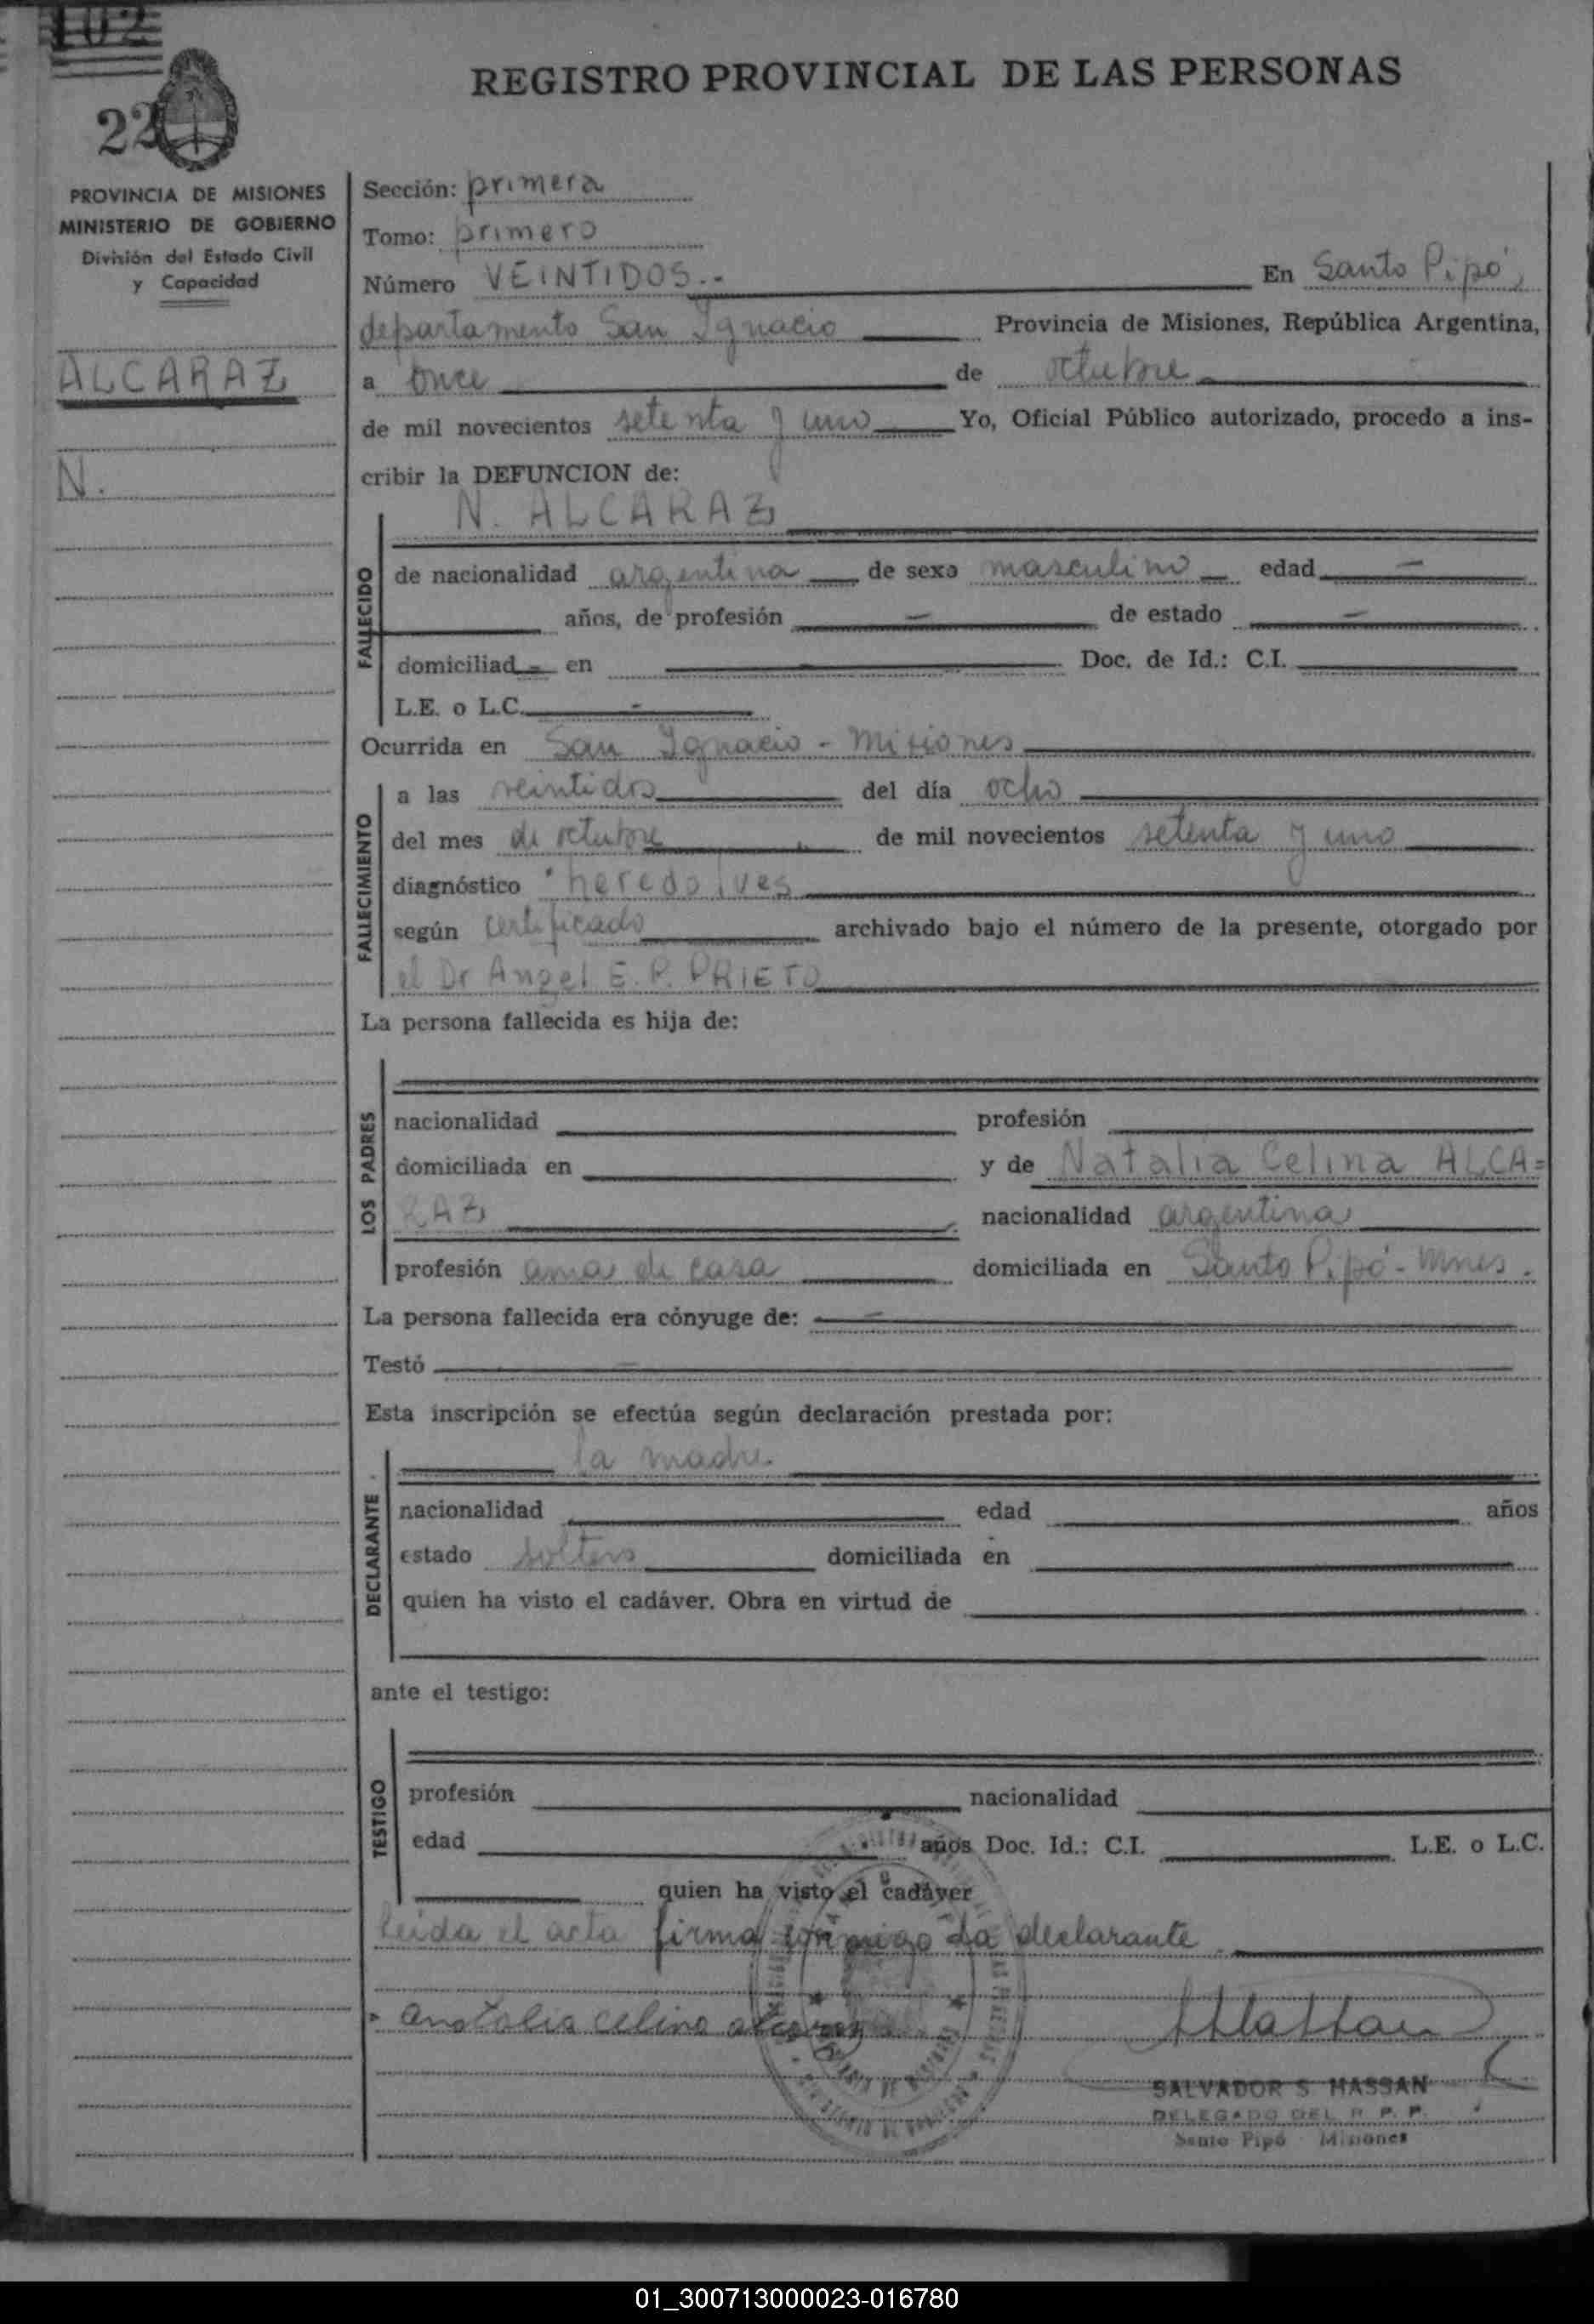 102
22
REGISTRO PROVINCIAL DE LAS PERSONAS
PROVINCIA DE MISIONES
MINISTERIO DE GOBIERNO
División del Estado Civil
y Capacidad
ALCARAZ
N.
Sección: primera
Tomo: primero
Número VEINTIDOS.- En Santo Pipó,
departamento San Ignacio Provincia de Misiones, República Argentina,
a once de octubre
de mil novecientos setenta y uno Yo, Oficial Público autorizado, procedo a ins-
cribir la DEFUNCION de:
N. ALCARAZ
FALLECIDO
de nacionalidad argentina de sexo masculino edad -
años, de profesión - de estado -
domiciliad- en Doc. de Id.: C.I.
L.E. o L.C. -
Ocurrida en San Ignacio - Misiones
FALLECIMIENTO
a las veintidos del día ocho
del mes de octubre de mil novecientos setenta y uno
diagnóstico heredo lues
según certificado archivado bajo el número de la presente, otorgado por
el Dr Angel E. P. PRIETO
La persona fallecida es hija de:
LOS PADRES
nacionalidad profesión
domiciliada en y de Natalia Celina ALCA=
RAZ nacionalidad argentina
profesión ama de casa domiciliada en Santo Pipó - Mnes.
La persona fallecida era cónyuge de: -
Testó
Esta inscripción se efectúa según declaración prestada por:
la madre.
DECLARANTE
nacionalidad edad años
estado soltera domiciliada en
quien ha visto el cadáver. Obra en virtud de
ante el testigo:
TESTIGO
profesión nacionalidad
edad años Doc. Id.: C.I. L.E. o L.C.
quien ha visto el cadáver
leida el acta firma conmigo la declarante
anatalia celina alcaraz
SALVADOR S. MASSAN
DELEGADO DEL R. P. P.
Santo Pipó Misiones
01_300713000023-016780